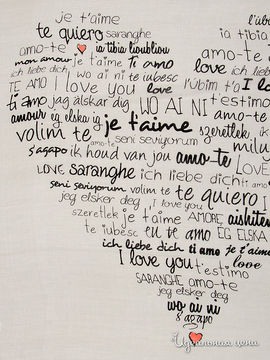 je t'aime
te quiero
saranghe
amo-te
ia tibia lioubliou
mon amour je t'aime ti amo
ich liebe dich wo ai ni te iubesc
TE AMO I love you love
ti amo jag älskar dig WO AI NI
amour eg elska ig je t'aime
volim te amo-te seni seviyorum
s'agapo ik houd van jou amo-te
LOVE saranghe ich liebe dich
seni seviyorum volim te te quiero
jeg elsker deg I love you
szeretlek je t'aime AMORE
te iubesc eu te amo EG ELSKA
ich liebe dich ti amo je t'aime
I love you love
t'estimo
SARANGHE amo-te
jeg elsker deg
wo ai ni
s'agapo
amo-te
ia tibia
amo-te
love ich
t'estimo
szeretlek
ti amo
I love
Идеальная цена